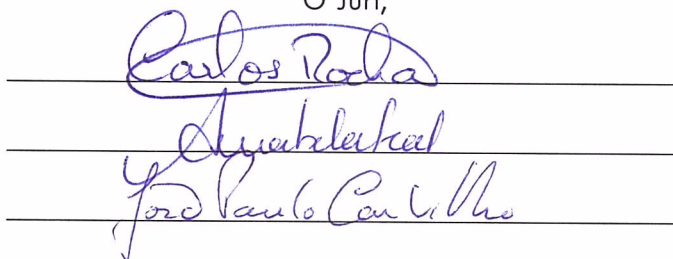 O Júri,
Carlos Rocha
João Paulo Carvilho